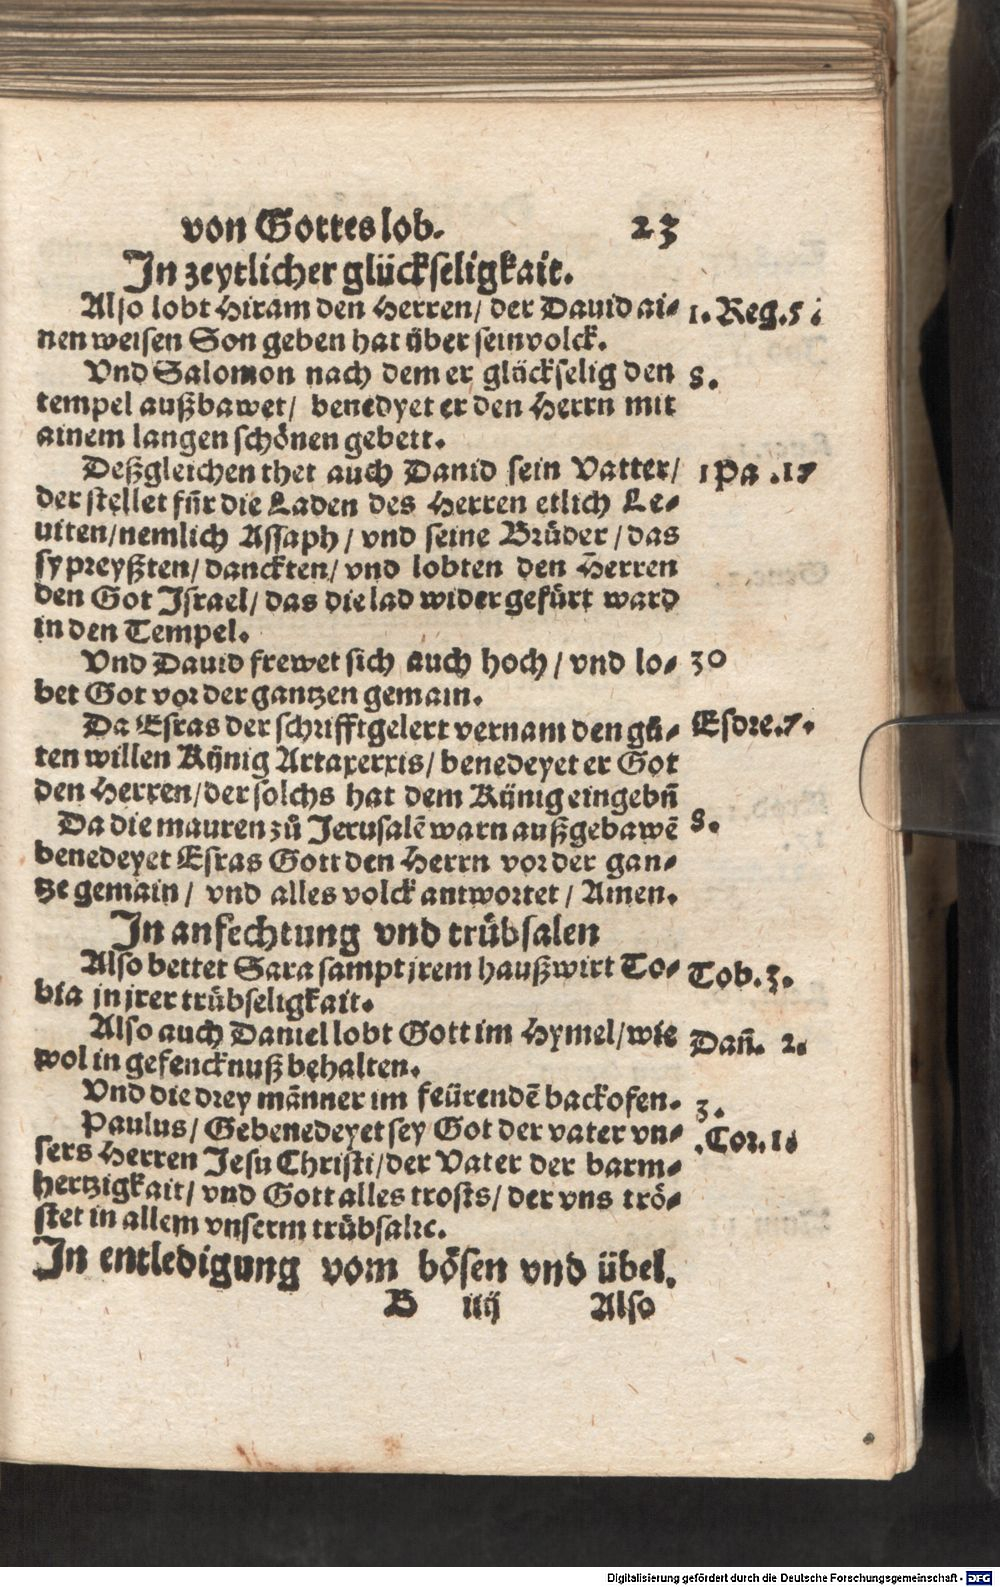 von Gottes lob. 23
In zeytlicher glückseligkait.
Also lobt Hiram den Herren/ der Dauid ai- 1. Reg. 5.
nen weisen Son geben hat über sein volck.
Vnd Salomon nach dem er glückselig den 8.
tempel außbawet/ benedyet er den Herrn mit
ainem langen schönen gebett.
Deßgleichen thet auch Dauid sein Vatter/ 1 Pa. 17
der stellet für die Laden des Herren etlich Le-
uiten/ nemlich Assaph/ vnd seine Brüder/ das
sy preyßten/ danckten/ vnd lobten den Herren
den Got Israel/ das die lad wider gefürt ward
in den Tempel.
Vnd Dauid frewet sich auch hoch/ vnd lo- 30
bet Got vor der gantzen gemain.
Da Esras der schrifftgelert vernam den gů- Esdre. 7.
ten willen Künig Artaxerxis/ benedeyet er Got
den Herren/ der solchs hat dem Künig eingebn̄
Da die mauren zů Jerusalē warn außgebawē 8.
benedeyet Esras Gott den Herrn vor der gan-
tze gemain/ vnd alles volck antwortet/ Amen.
In anfechtung vnd trübsalen
Also bettet Sara sampt jrem haußwirt To- Tob. 3.
bia in jrer trübseligkait.
Also auch Daniel lobt Gott im Hymel/ wie Dan̄. 2.
wol in gefencknuß behalten.
Vnd die drey männer im feürendē backofen. 3.
Paulus/ Gebenedeyet sey Got der vater vn- .Cor. 1.
sers Herren Jesu Christi/ der Vater der barm-
hertzigkait/ vnd Gott alles trosts/ der vns trö-
stet in allem vnserm trübsal ꝛc.
In entledigung vom bösen vnd übel.
B iiij Also
Digitalisierung gefördert durch die Deutsche Forschungsgemeinschaft - DFG